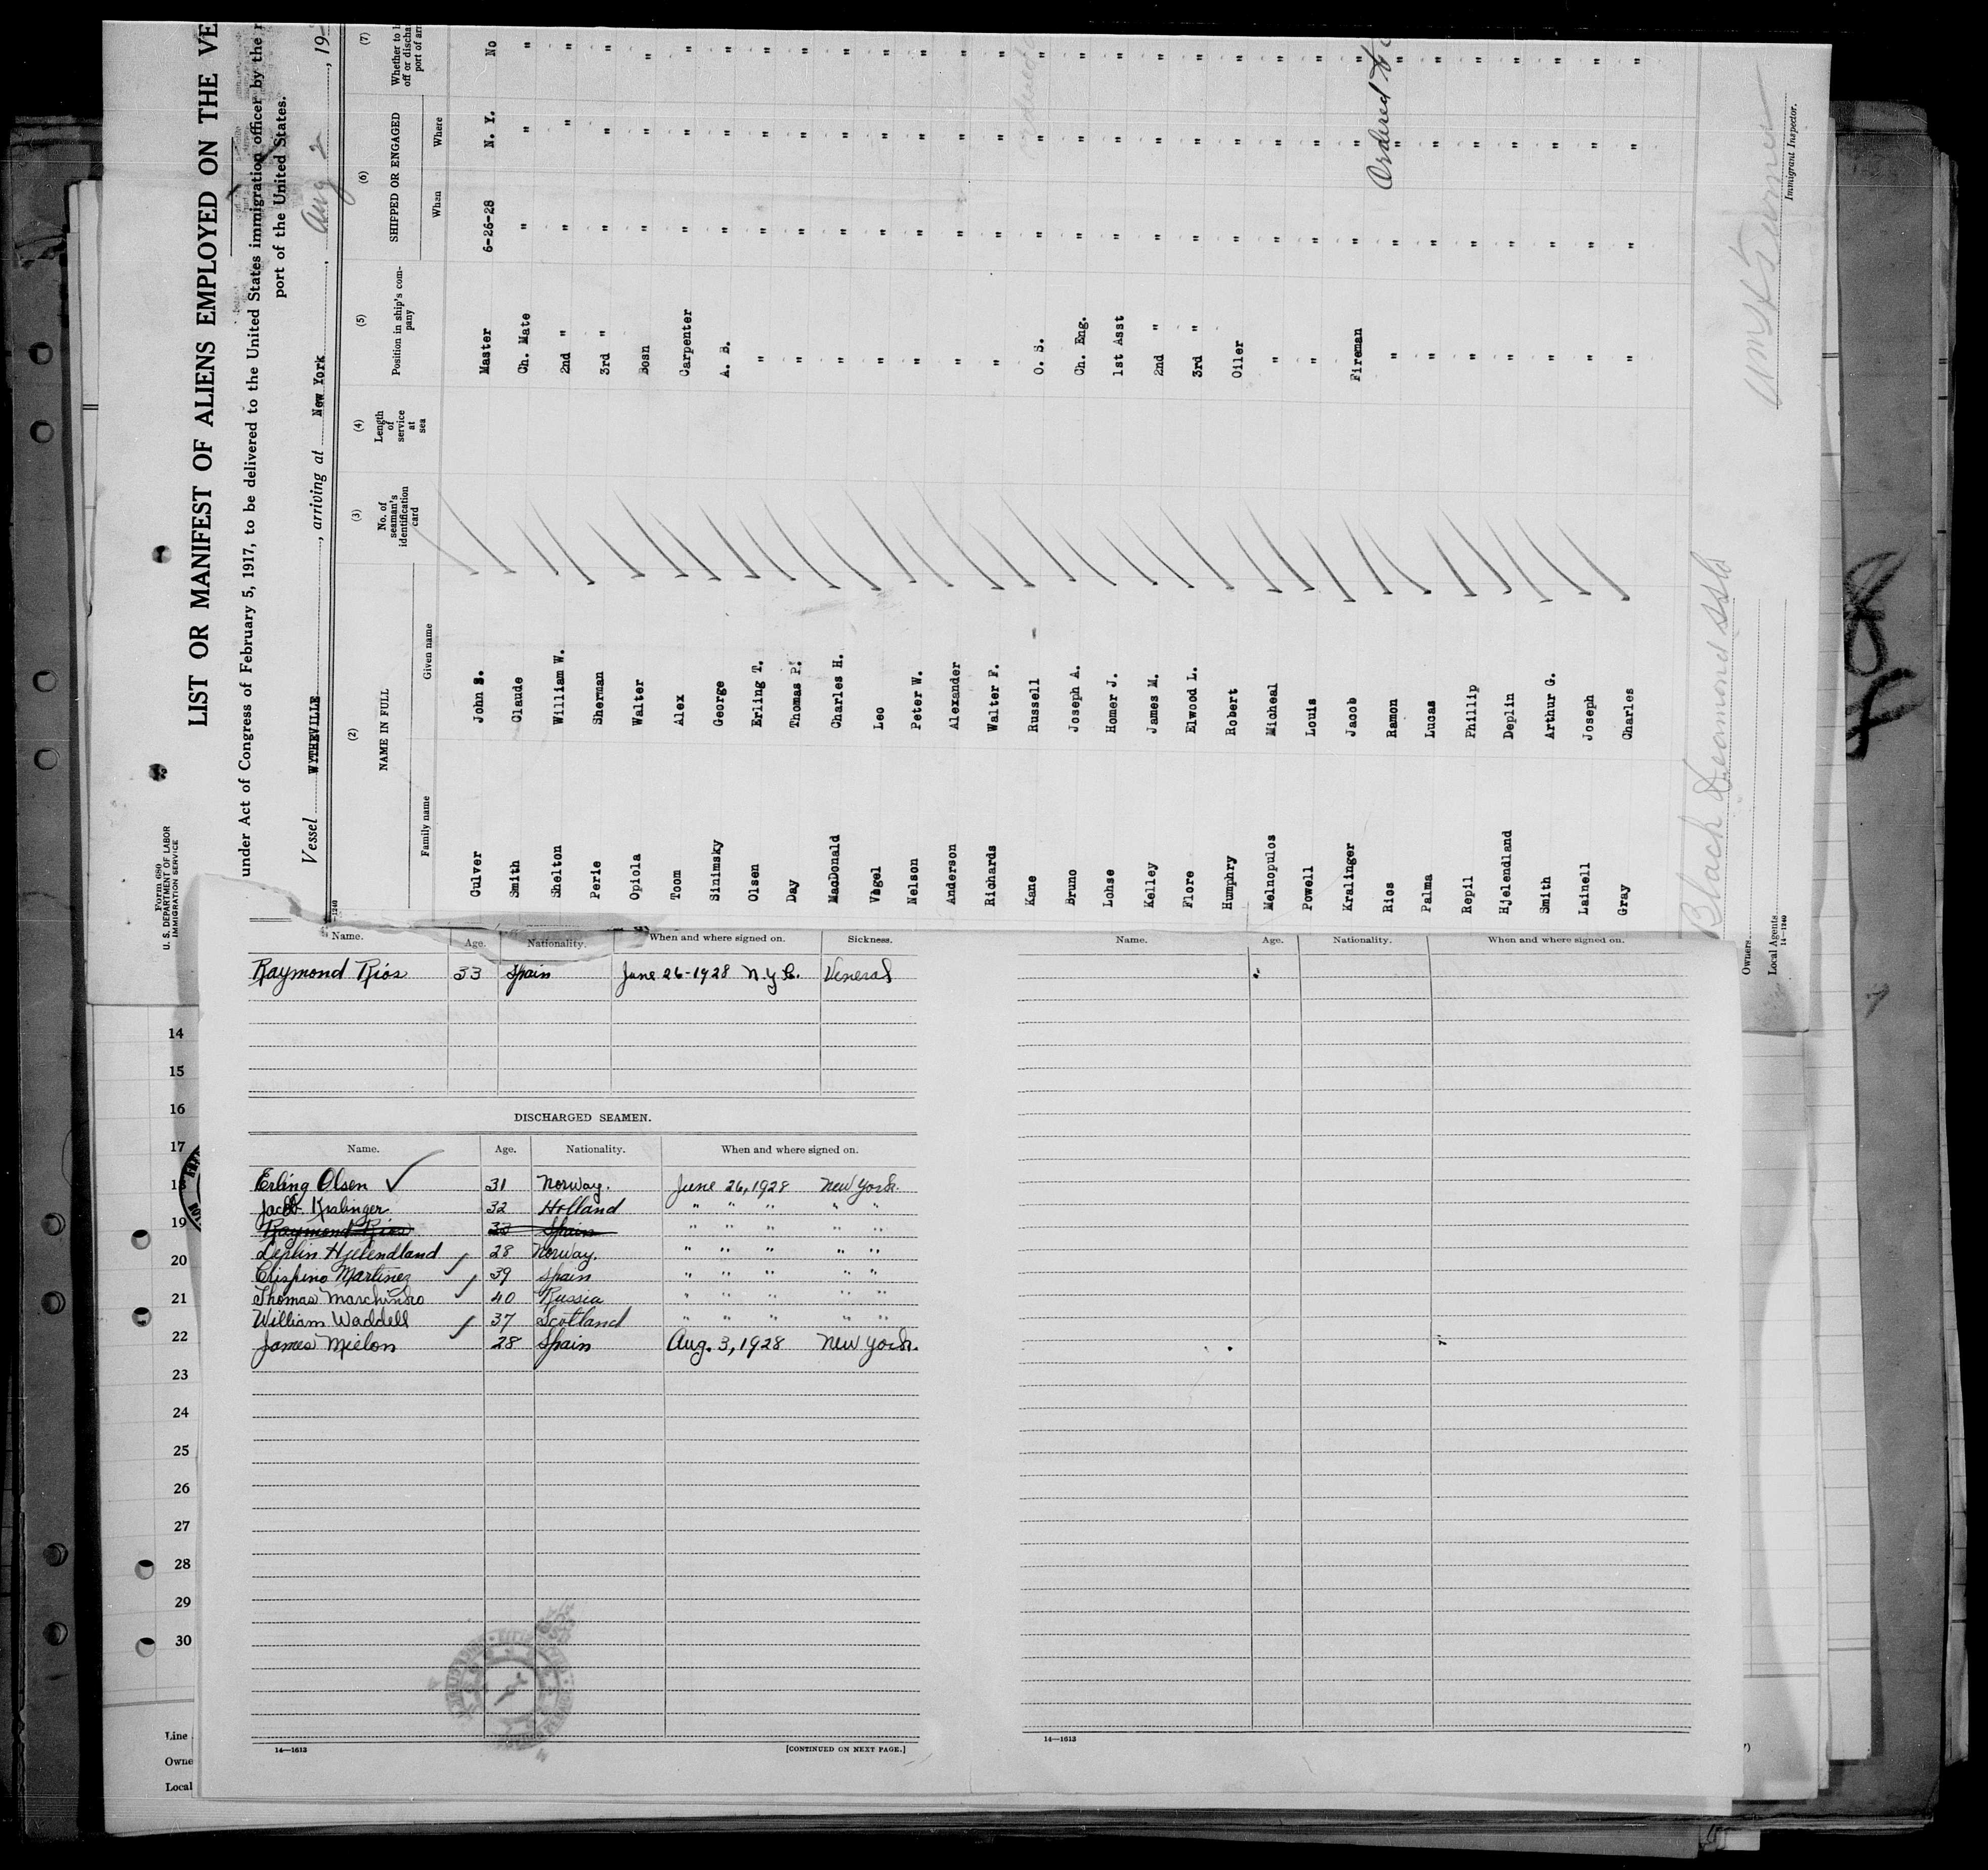 Form 680
U. S. DEPARTMENT OF LABOR
IMMIGRATION SERVICE
LIST OR MANIFEST OF ALIENS EMPLOYED ON THE VE
under Act of Congress of February 5, 1917, to be delivered to the United States immigration officer by the r
port of the United States.
Vessel WYTHEVILLE, arriving at New York, Aug 2, 19
(2) (3) (4) (5) (6) (7)
NAME IN FULL No. of seaman's identification card Length of service at sea Position in ship's company SHIPPED OR ENGAGED Whether to
off or discha
port of arr
Family name Given name When Where
Culver John S. Master 6-26-28 N. Y. No
Smith Claude Ch. Mate " " "
Shelton William W. 2nd " " " "
Perie Sherman 3rd " " " "
Opiola Walter Bosn " " "
Toom Alex Carpenter " " "
Sinimsky George A. B. " " "
Olsen Erling T. " " " "
Day Thomas P. " " " "
MacDonald Charles H. " " " "
Vogel Leo " " " "
Nelson Peter W. " " " "
Anderson Alexander " " " "
Richards Walter F. " " " "
Kane Russell O. S. " " "
Bruno Joseph A. Ch. Eng. " " "
Lohse Homer J. 1st Asst " " "
Kelley James M. 2nd " " " "
Flore Elwood L. 3rd " " " "
Humphry Robert Oiler " " "
Melnopulos Micheal " " " "
Powell Louis " " " "
Kralinger Jacob Fireman " " "
Rios Ramon " " " " Ordered to
Palma Lucas " " " "
Repil Phillip " " " "
Hjelendland Deplin " " " "
Smith Arthur G. " " " "
Lainell Joseph " " " "
Gray Charles " " " "
Black Diamond SS Co
Owners
Local Agents
14-1240
Immigrant Inspector.
Name. Age. Nationality. When and where signed on. Sickness.
Raymond Rios 33 Spain June 26-1928 N.Y.C. Veneral
DISCHARGED SEAMEN.
Name. Age. Nationality. When and where signed on.
Erling Olsen ✓ 31 Norway. June 26, 1928 New York.
Jacob Kralinger 32 Holland " " " " "
Raymond Rios 33 Spain " " " " "
Deplin Hjelendland 28 Norway. " " " " "
Crispino Martinez 39 Spain " " " " "
Thomas Marchinko 40 Russia " " " " "
William Waddell 37 Scotland " " " " "
James Mielon 28 Spain Aug. 3, 1928 New York.
14—1613
[CONTINUED ON NEXT PAGE.]
Name. Age. Nationality. When and where signed on.
14—1613
14
15
16
17
18
19
20
21
22
23
24
25
26
27
28
29
30
Line
Owne
Local